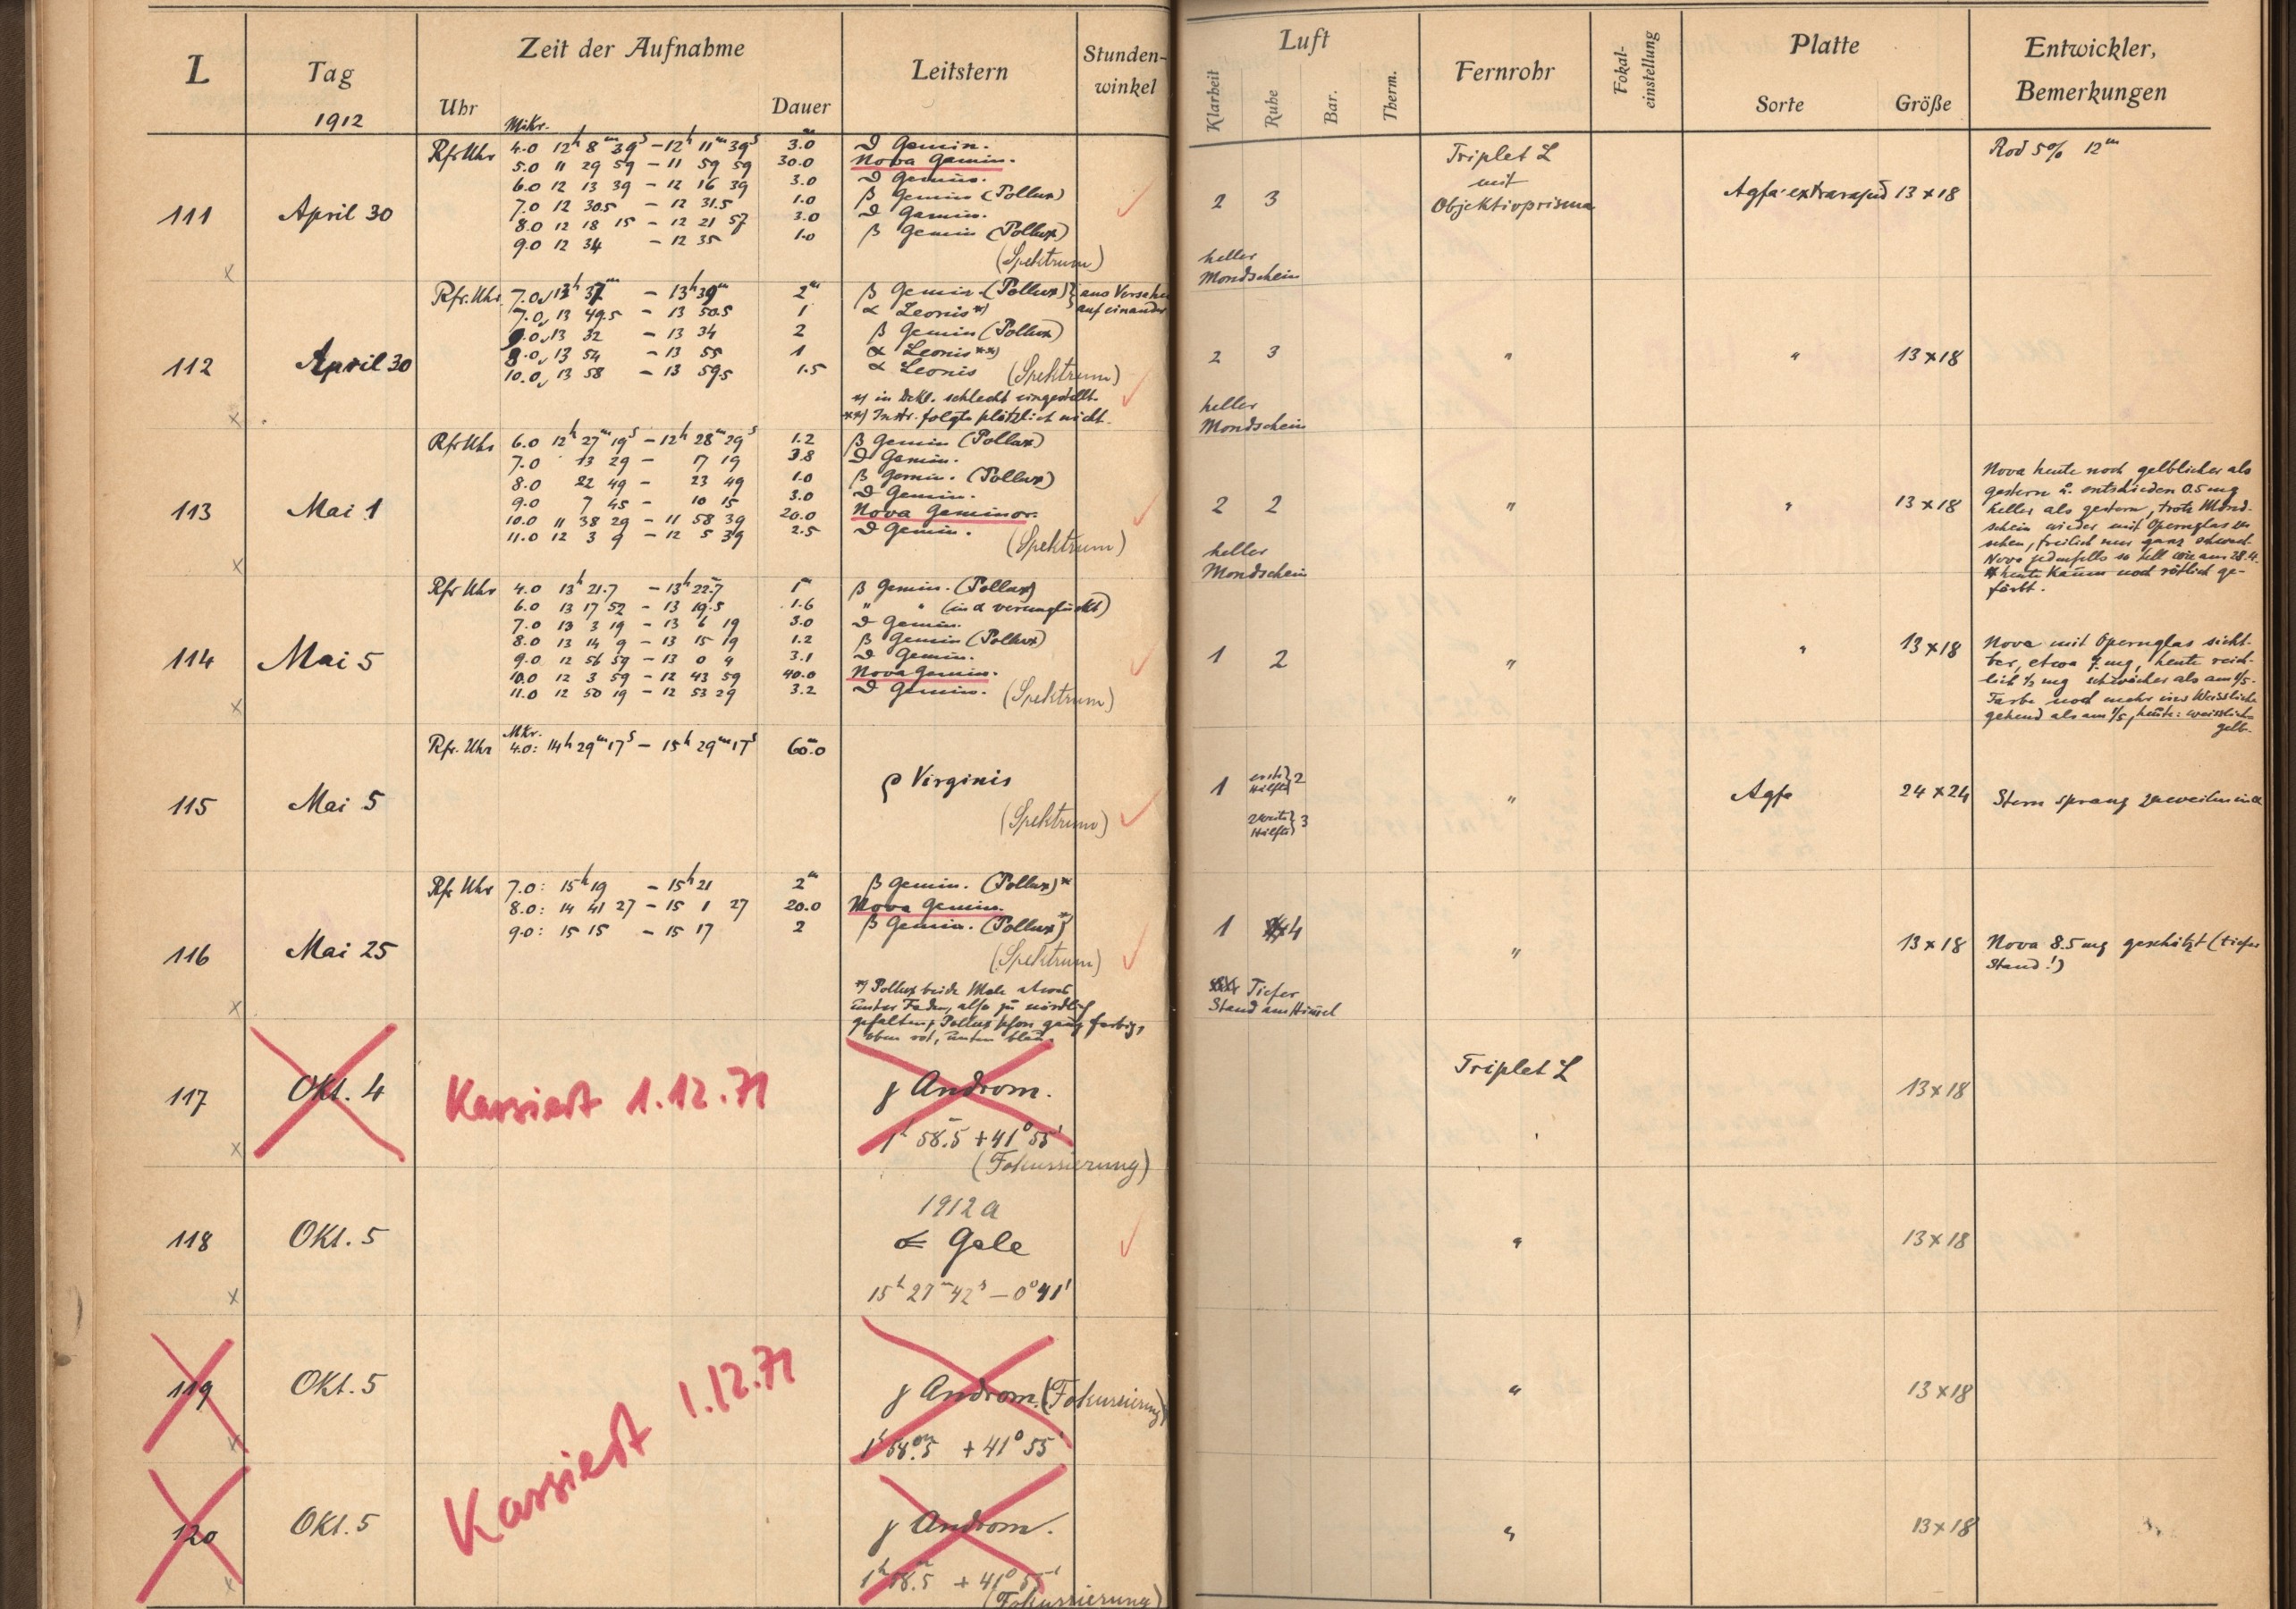 L
Tag
1912
Zeit der Aufnahme
Uhr
Mikr.
Dauer
Leitstern
Stunden-
winkel
Luft
Klarheit
Ruhe
Bar.
Therm.
Fernrohr
Fokal-
einstellung
Platte
Sorte
Größe
Entwickler,
Bemerkungen
111
April 30
Rfr Uhr
4.0 12h 8m 39s – 12h 11m 39s 3.0m ϑ Gemin.
5.0 11 29 59 – 11 59 59 30.0 Nova Gemin.
6.0 12 13 39 – 12 16 39 3.0 ϑ Gemin.
7.0 12 30.5 – 12 31.5 1.0 β Gemin (Pollux)
8.0 12 18 15 – 12 21 57 3.0 ϑ Gemin.
9.0 12 34 – 12 35 1.0 β Gemin (Pollux)
(Spektrum)
2 3
heller
Mondschein
Triplet L
mit
Objektivprisma
Agfa extrarapid 13×18
Rod 5% 12m
x
112
April 30
Rfr. Uhr
7.0, 13h 37m – 13h 39m 2m β Gemin. (Pollux) } aus Versehen
7.0, 13 49.5 – 13 50.5 1 α Leonis *) auf einander
9.0, 13 32 – 13 34 2 β Gemin (Pollux)
8.0, 13 54 – 13 55 1 α Leonis **)
10.0, 13 58 – 13 59.5 1.5 α Leonis (Spektrum)
*) in Dekl. schlecht eingestellt.
**) Instr. folgte plötzlich nicht.
2 3
heller
Mondschein
" " 13×18
x
113
Mai 1
Rfr Uhr
6.0 12h 27m 19s – 12h 28m 29s 1.2 β Gemin (Pollux)
7.0 13 29 – 17 19 3.8 ϑ Gemin.
8.0 22 49 – 23 49 1.0 β Gemin. (Pollux)
9.0 7 45 – 10 15 3.0 ϑ Gemin.
10.0 11 38 29 – 11 58 39 20.0 Nova Geminor.
11.0 12 3 9 – 12 5 39 2.5 ϑ Gemin.
(Spektrum)
2 2
heller
Mondschein
" " 13×18
Nova heute noch gelblicher als
gestern u. entschieden 0.5 mg
heller als gestern, trotz Mond-
schein wieder mit Opernglas zu
sehen, freilich nur ganz schwach.
Nova jedenfalls so hell wie am 28.4.
heute kaum noch rötlich ge-
färbt.
x
114
Mai 5
Rfr Uhr
4.0 13h 21.7 – 13h 22.7 1m β Gemin. (Pollux)
6.0 13 17 52 – 13 19.5 1.6 " " (in α verunglückt)
7.0 13 3 19 – 13 6 19 3.0 ϑ Gemin.
8.0 13 14 9 – 13 15 19 1.2 β Gemin (Pollux)
9.0 12 56 59 – 13 0 4 3.1 ϑ Gemin.
10.0 12 3 59 – 12 43 59 40.0 Nova Gemin.
11.0 12 50 19 – 12 53 29 3.2 ϑ Gemin. (Spektrum)
1 2
" " 13×18
Nova mit Opernglas sicht-
bar, etwa 7 mg, heute reich-
lich ½ mg schwächer als am 1/5.
Farbe noch mehr ins Weissliche
gehend als am 1/5, heute: weisslich-
gelb.
x
115
Mai 5
Mkr.
Rfr. Uhr 4.0: 14h 29m 17s – 15h 29m 17s 60.0m
ρ Virginis
(Spektrum)
1 erste Hälfte } 2
zweite Hälfte } 3
" Agfa 24×24 Stern sprang zuweilen in α
116
Mai 25
Rfr Uhr
7.0: 15h 19 – 15h 21 2m β Gemin. (Pollux)*
8.0: 14 41 27 – 15 1 27 20.0 Nova Gemin.
9.0: 15 15 – 15 17 2 β Gemin. (Pollux)*
(Spektrum)
*) Pollux beide Male etwas
unter Faden, also zu nördlich
gehalten; Pollux schon ganz farbig,
oben rot, unten blau.
1 4
Tiefer
Stand am Himmel
" 13×18 Nova 8.5 mg geschätzt (tiefer
Stand!)
x
117
Okt. 4
Kassiert 1.12.71
γ Androm.
1h 58.5m +41° 55'
(Fokussierung)
Triplet L 13×18
x
118
Okt. 5
1912 a
Gale
15h 27m 42s – 0° 41'
" 13×18
x
119
Okt. 5
Kassiert 1.12.71
γ Androm. (Fokussierung)
1h 58m.5 +41° 55'
" 13×18
x
120
Okt. 5
γ Androm.
1h 58m.5 +41° 55'
(Fokussierung)
" 13×18
x